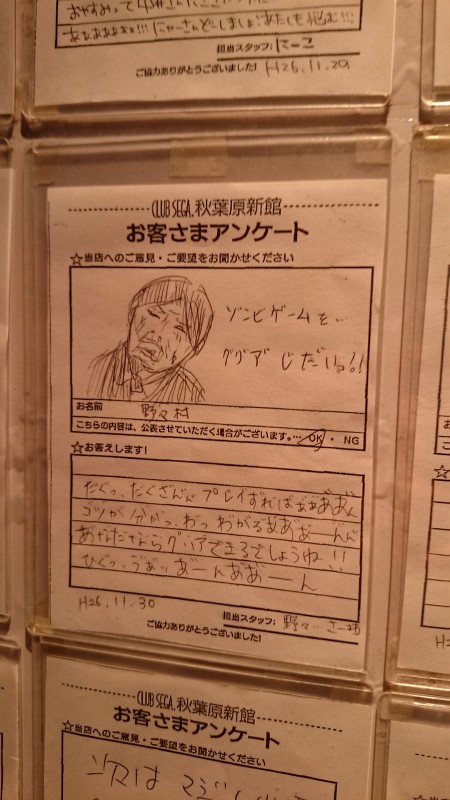 あぁぁぁぁぁぁ!!! にゃーさんどーしましょ!あたしも悩む…!!
担当スタッフ: にーこ
ご協力ありがとうございました! H26.11.29
CLUB SEGA.秋葉原新館
お客さまアンケート
☆当店へのご意見・ご要望をお聞かせください
ゾンビゲームを…
グリア゙じだいっ!!
お名前 野々村
こちらの内容は、公表させていただく場合がございます。… OK・NG
☆お答えします!
たぐっ、たくざんんプレイずればぁぁあ゙あ゙ん
ゴツが分がっ、わっわがるあ゙あ゙あ゙ーんん
あ゙なだなら グリアできるでしょうね!!
ひぐっ、うぁッあ゙ーんああ゙ーん
H26.11.30
担当スタッフ: 野々…さー坊
ご協力ありがとうございました!
CLUB SEGA.秋葉原新館
お客さまアンケート
☆当店へのご意見・ご要望をお聞かせください
次は マジ